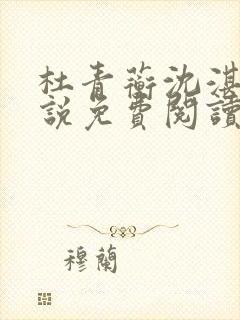 杜青蘅沈湛
說免費閱讀
穆蘭